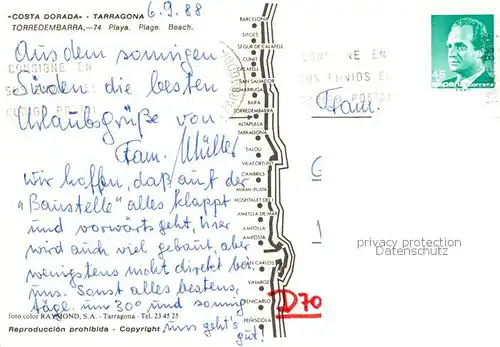 «COSTA DORADA» - TARRAGONA
TORREDEMBARRA.—74 Playa. Plage. Beach.
6.9.88
Aus dem sonnigen
Süden die besten
Urlaubsgrüße von
Fam. Müller
wir hoffen, daß auf der
"Baustelle" alles klappt
und vorwärts geht, hier
wird auch viel gebaut, aber
wenigstens nicht direkt bei
uns. Sonst alles bestens,
tägl. um 30° und sonnig
uns geht's
gut!
foto color RAYMOND, S.A. - Tarragona - Tel. 23 45 25
Reproducción prohibida - Copyright
BARCELONA
SITGES
SEGUR DE CALAFELL
CUNIT
CALAFELL
SAN SALVADOR
COMARRUGA
BARA
TORREDEMBARRA
ALTAFULLA
TARRAGONA
SALOU
VILAFORTUNY
CAMBRILS
MIAMI-PLAYA
HOSPITALET DEL I.
AMETLLA DE MAR
AMPOLLA
AMPOSTA
S. CARLOS
VINAROZ
BENICARLO
PEÑISCOLA
CONSIGNE EN
SUS ENVIOS EL
CODIGO POSTAL
CONSIGNE EN
SUS ENVIOS EL
POSTAL
45
correos
Fam.
D70
privacy protection
Datenschutz